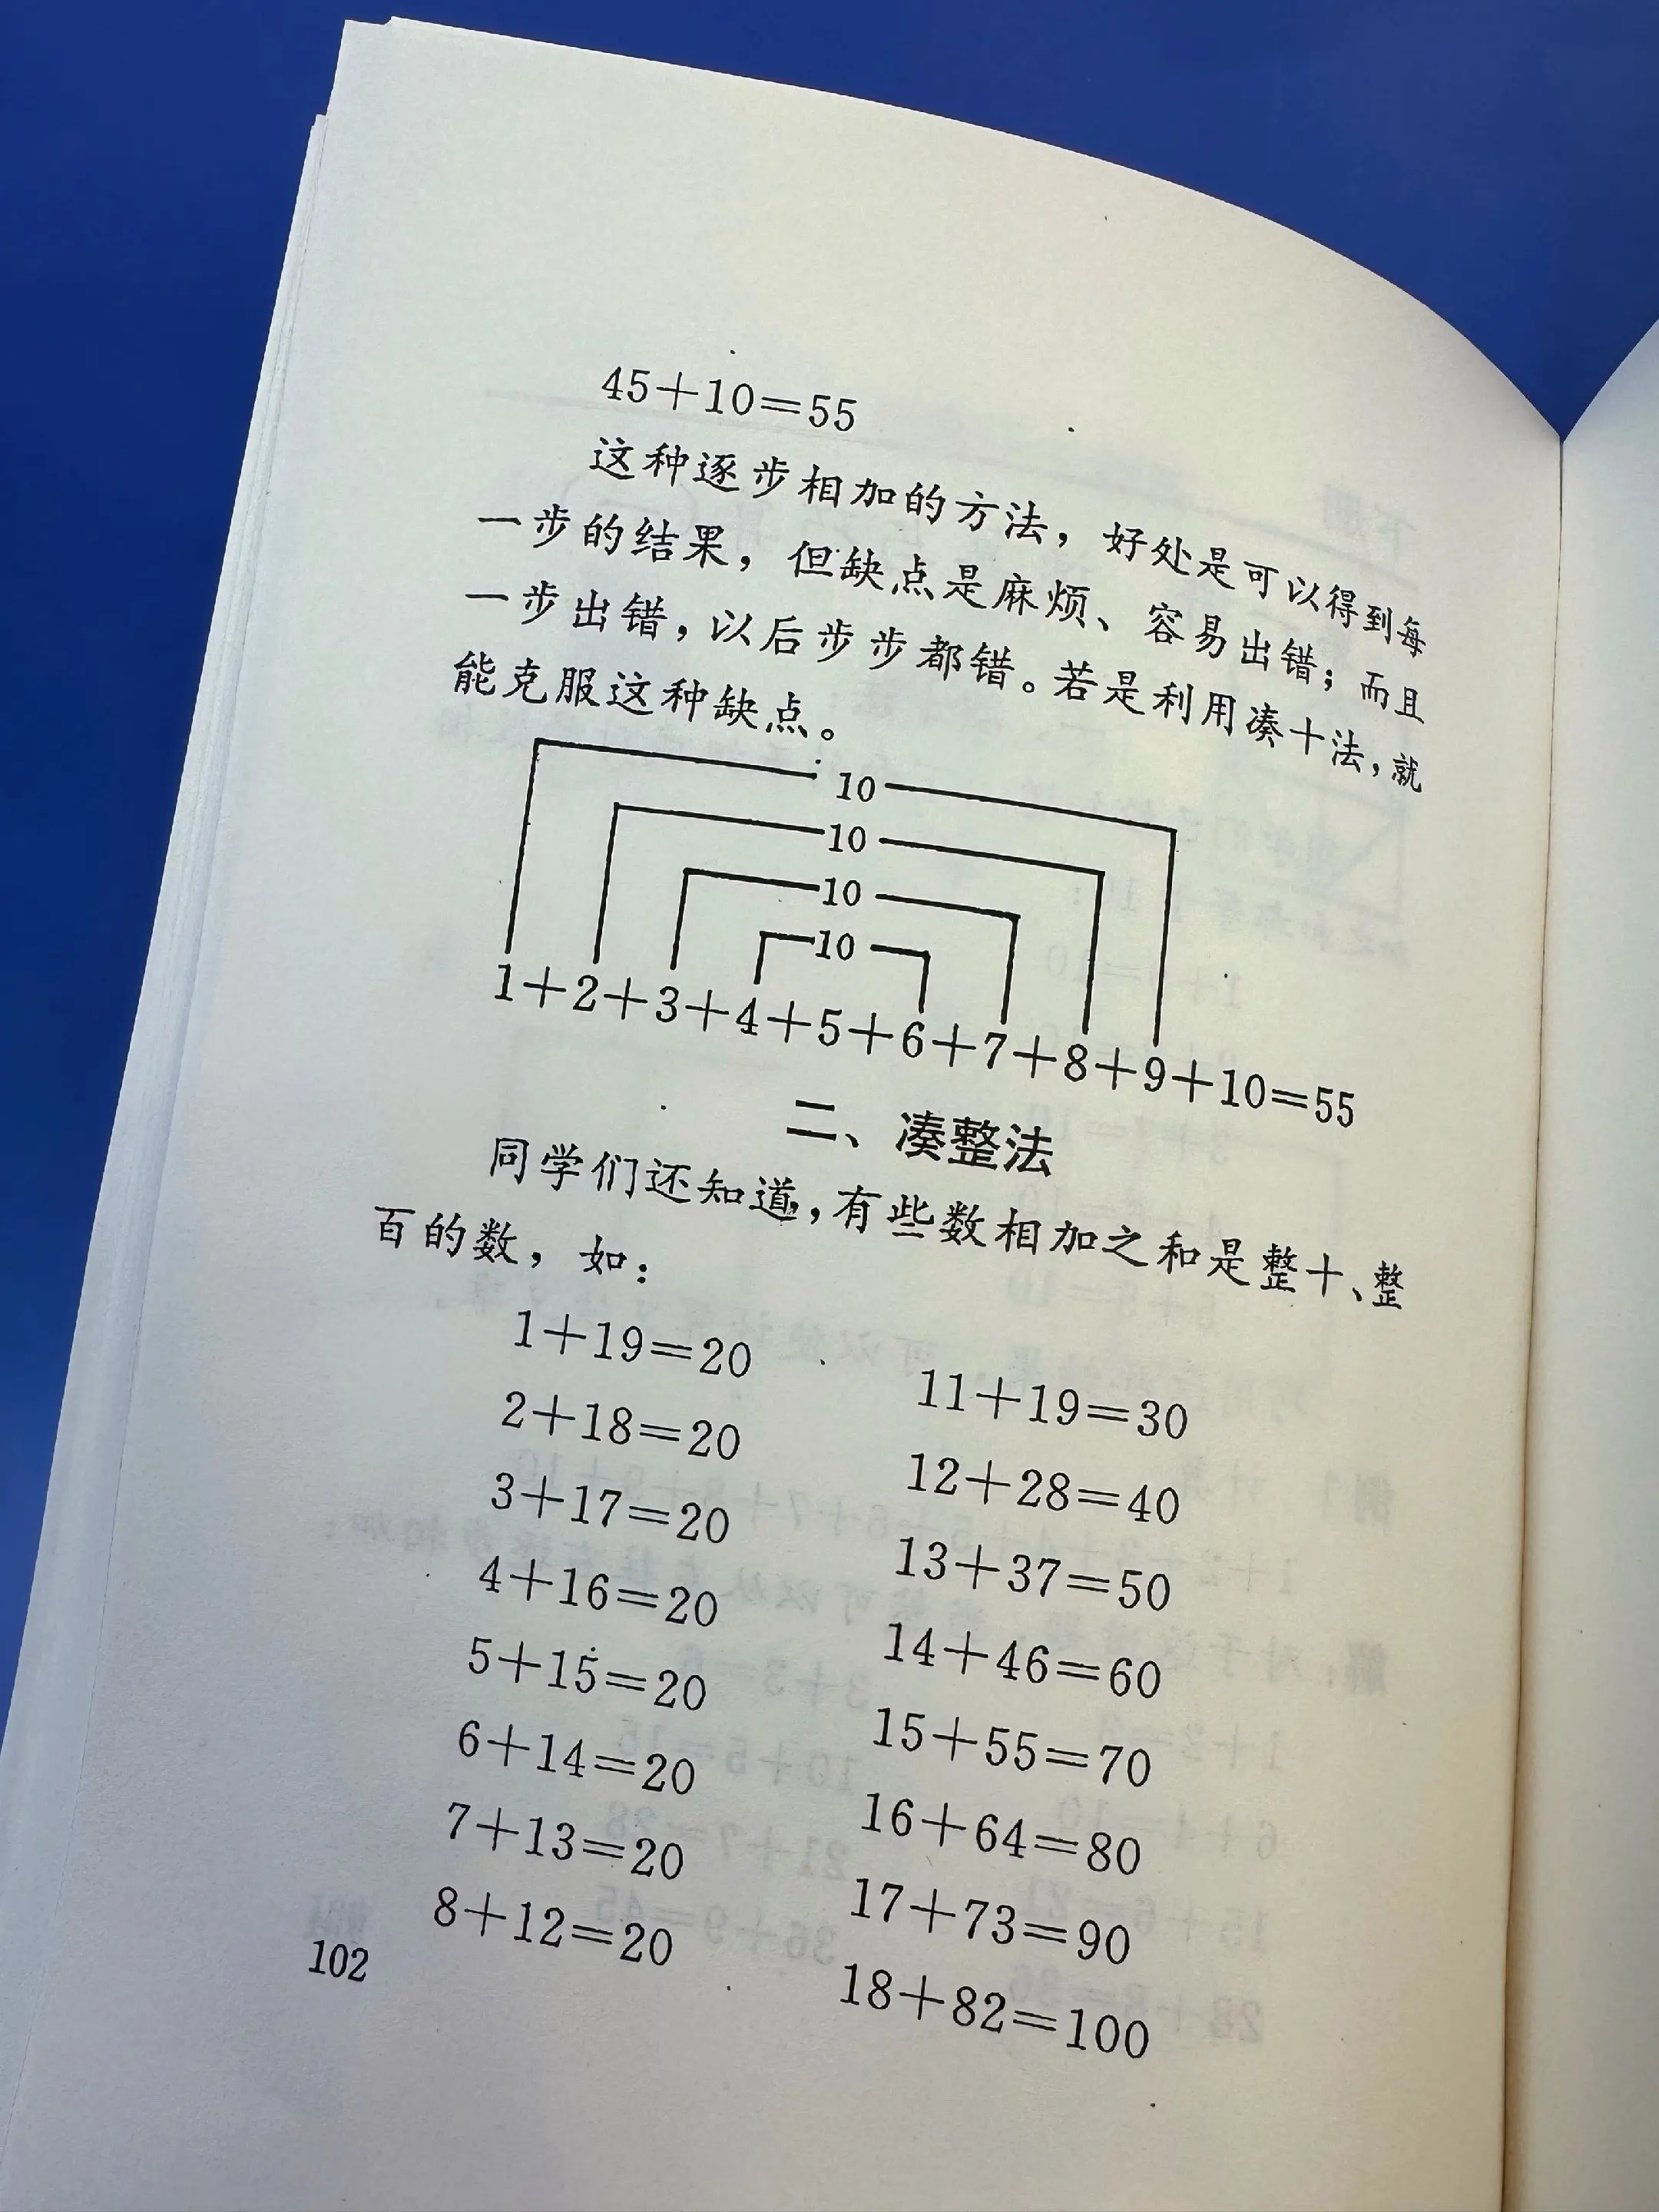 45+10=55
这种逐步相加的方法，好处是可以得到每
一步的结果，但缺点是麻烦、容易出错；而且
一步出错，以后步步都错。若是利用凑十法，就
能克服这种缺点。
10
10
10
10
1+2+3+4+5+6+7+8+9+10=55
二、凑整法
同学们还知道，有些数相加之和是整十、整
百的数，如：
1+19=20
11+19=30
2+18=20
12+28=40
3+17=20
13+37=50
4+16=20
14+46=60
5+15=20
15+55=70
6+14=20
16+64=80
7+13=20
17+73=90
8+12=20
18+82=100
102